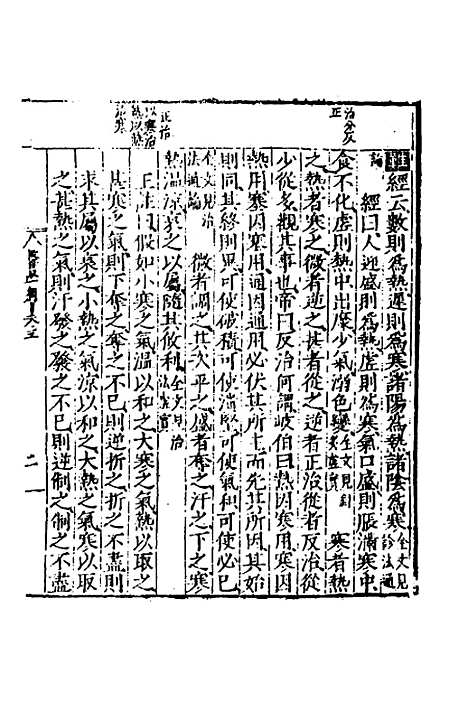 治分反
正
正治
以寒治
熱以熱
治寒
難經云數則為熱遲則為寒諸陽為熱諸陰為寒全文見診法通
論
經曰人迎盛則為熱虛則為寒氣口盛則脹滿寒中
食不化虛則熱中出糜少氣溺色變全文見 寒者熱
之熱者寒之微者逆之甚者從之逆者正治從者反治從
少從多觀其事也帝曰反治何謂岐伯曰熱因寒用寒因
熱用塞因塞用通因通用必伏其所主而先其所因其始
則同其終則異可使破積可使潰堅可使氣和可使必已
全文見治法通論 微者調之其次平之盛者奪之汗之下之寒
熱溫涼衰之以屬隨其攸利全文見治法
王註曰假如小寒之氣溫以和之大寒之氣熱以取之
甚寒之氣則下奪之奪之不已則逆折之折之不盡則
求其屬以衰之小熱之氣涼以和之大熱之氣寒以取
之甚熱之氣則汗發之發之不已則逆制之制之不盡
二